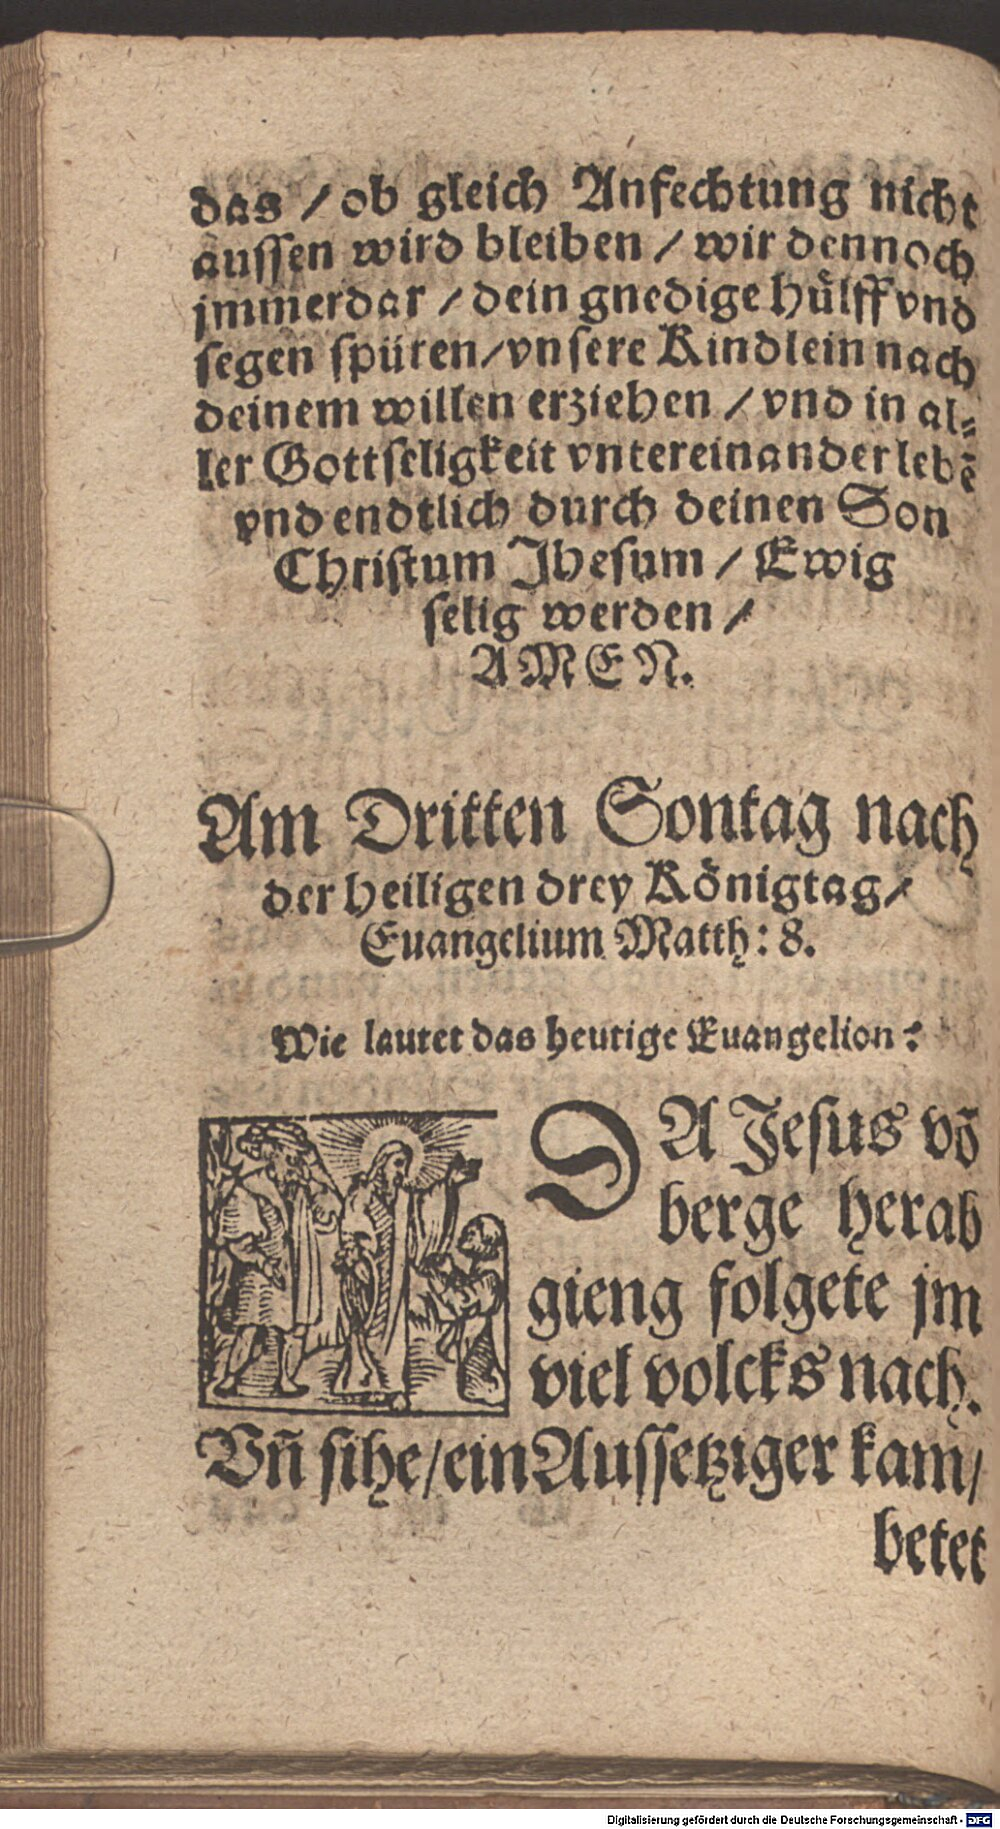 das / ob gleich Anfechtung nicht
aussen wird bleiben / wir dennoch
jmmerdar / dein gnedige hülff vnd
segen spüren/vnsere Kindlein nach
deinem willen erziehen / vnd in al-
ler Gottseligkeit vntereinander lebē
vnd endtlich durch deinen Son
Christum Jhesum / Ewig
selig werden /
AMEN.
Am Dritten Sontag nach
der heiligen drey Königtag/
Euangelium Matth: 8.
Wie lautet das heutige Euangelion?
DA Jesus võ
berge herab
gieng folgete jm
viel volcks nach.
Vñ sihe/ein Aussetziger kam/
betet
Digitalisierung gefördert durch die Deutsche Forschungsgemeinschaft - DFG